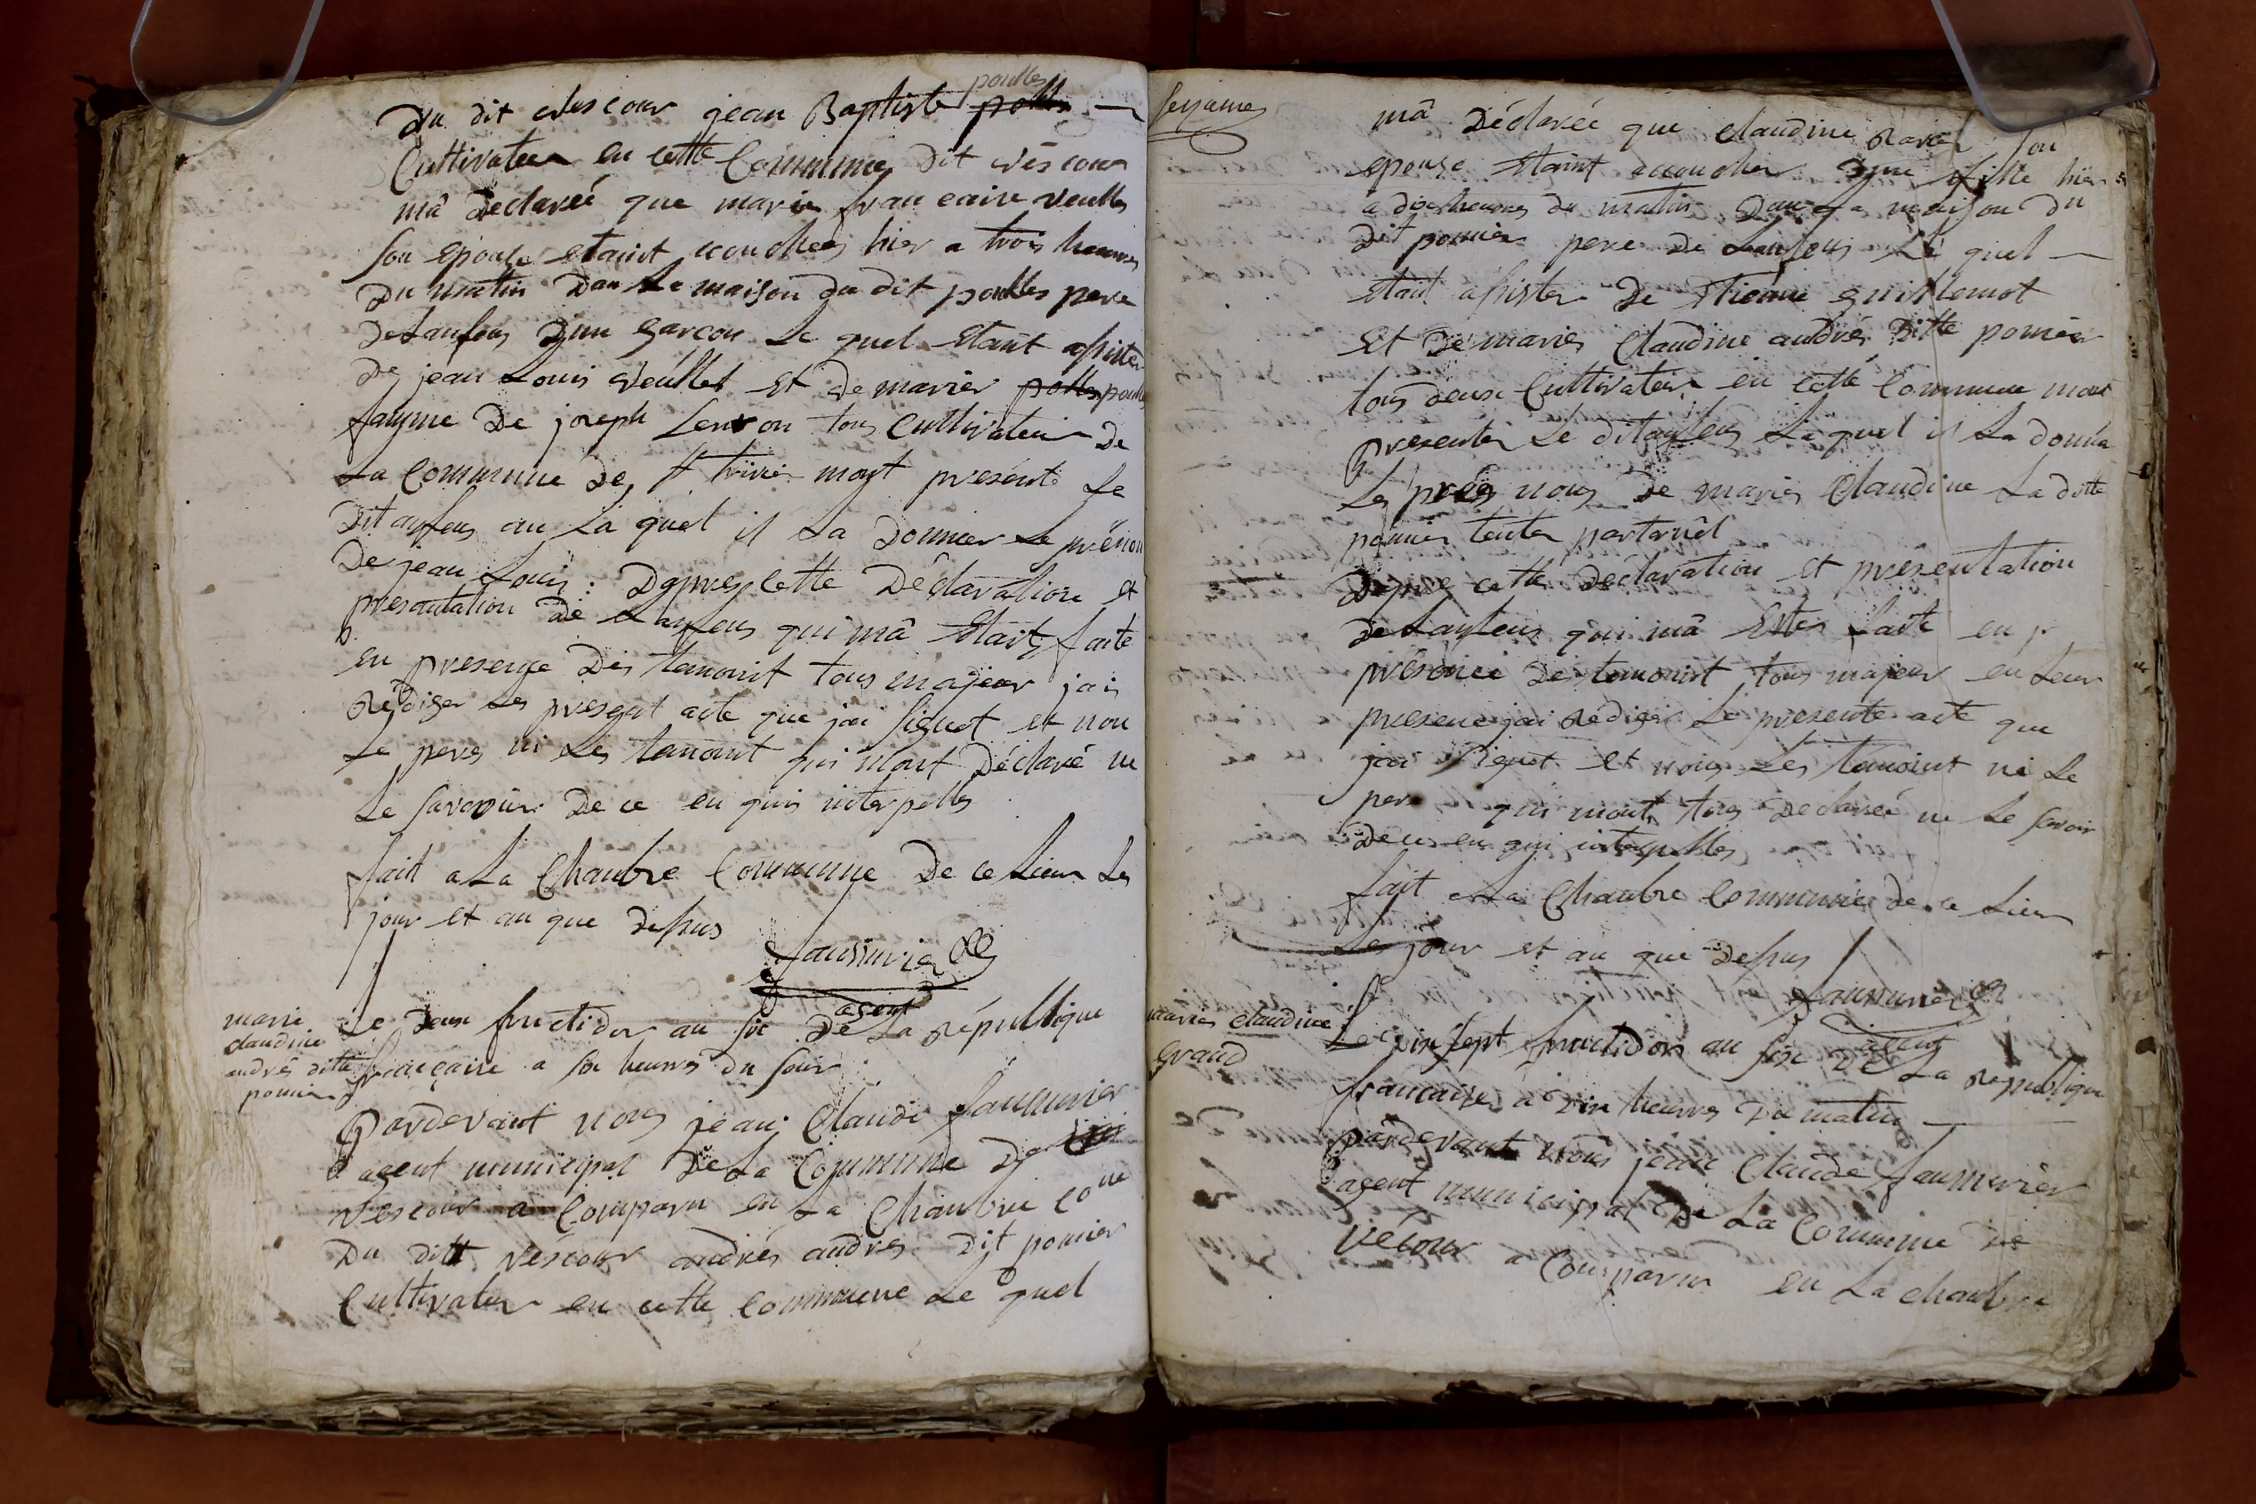 poulles
Du dit vescour jean Baptiste
Cultivateur en cette Commune dit véscour
mâ declareé que marie francaise veulles
son epouse etaint acouchees hier a trois heures
du matin dans la maison du dit poulles pere
de lanfens dun garcon le quel etant assister
de jean Louis veullet et de marier poulles
famme De joseph Lenron tous cultivateur de
La commune de st trivier mont presénté le
dit anfens au la quel il la donner le prénon
de jean Louis : Dapres cette déclaration et
présantation de lanfens qui mâ etant faite
en presence des temoint tous majeur jais
rédiger les present acte que jai signet et non
le peres ni les temoint qui mont déclaré ne
le savoir de ce en quis interpelles
fait a la Chanbre Commune De ce lieux les
jour et an que dessus
faussurier
agent
marie
claudine
andrés ditte
pomier
Le deux fructidor an six De La république
francaise a six heures du soir
Pardevant nous jean Claude faussurier
agent municipal De La Commune De
vescour a Comparu en la Chanbre cone
Du ditt véscour andrés andres dit pomier
Cultivateur en cette commune le quel
mâ déclarée que claudine ravier son
epouse etaint acoucher dune fille hier
a dix heures du matin dans la maison du
dit pomier pere de lanfens le quel
etant assister de etienne guillemot
et de maries Claudine andrés ditte pomier
tous deux Cultivateur en cette commune mont
presenter le dit anfens la quel il la donéa
les prés nous de maries Claudine la ditte
pomier
Dapres cette déclaration et présentation
de lanfens qui mâ etes faite en
présence des temoint tous majeur en leur
presence jai rédiger le presente acte que
jai signet et nous les temoint ni le
pere qui mont tous declareé ne le savoir
de ce en qui interpelles
fait a la Chanbre Commune de ce lieu
les jour et an que dessus
faussurier
agent
maries claudine
Grand
Le dix sept fructidor an six de La republique
francaise a dix heures du matin
pardevant nous jean Claude faussurier
agent municipal De La Commune de
vécour a Comparu en La chanbre